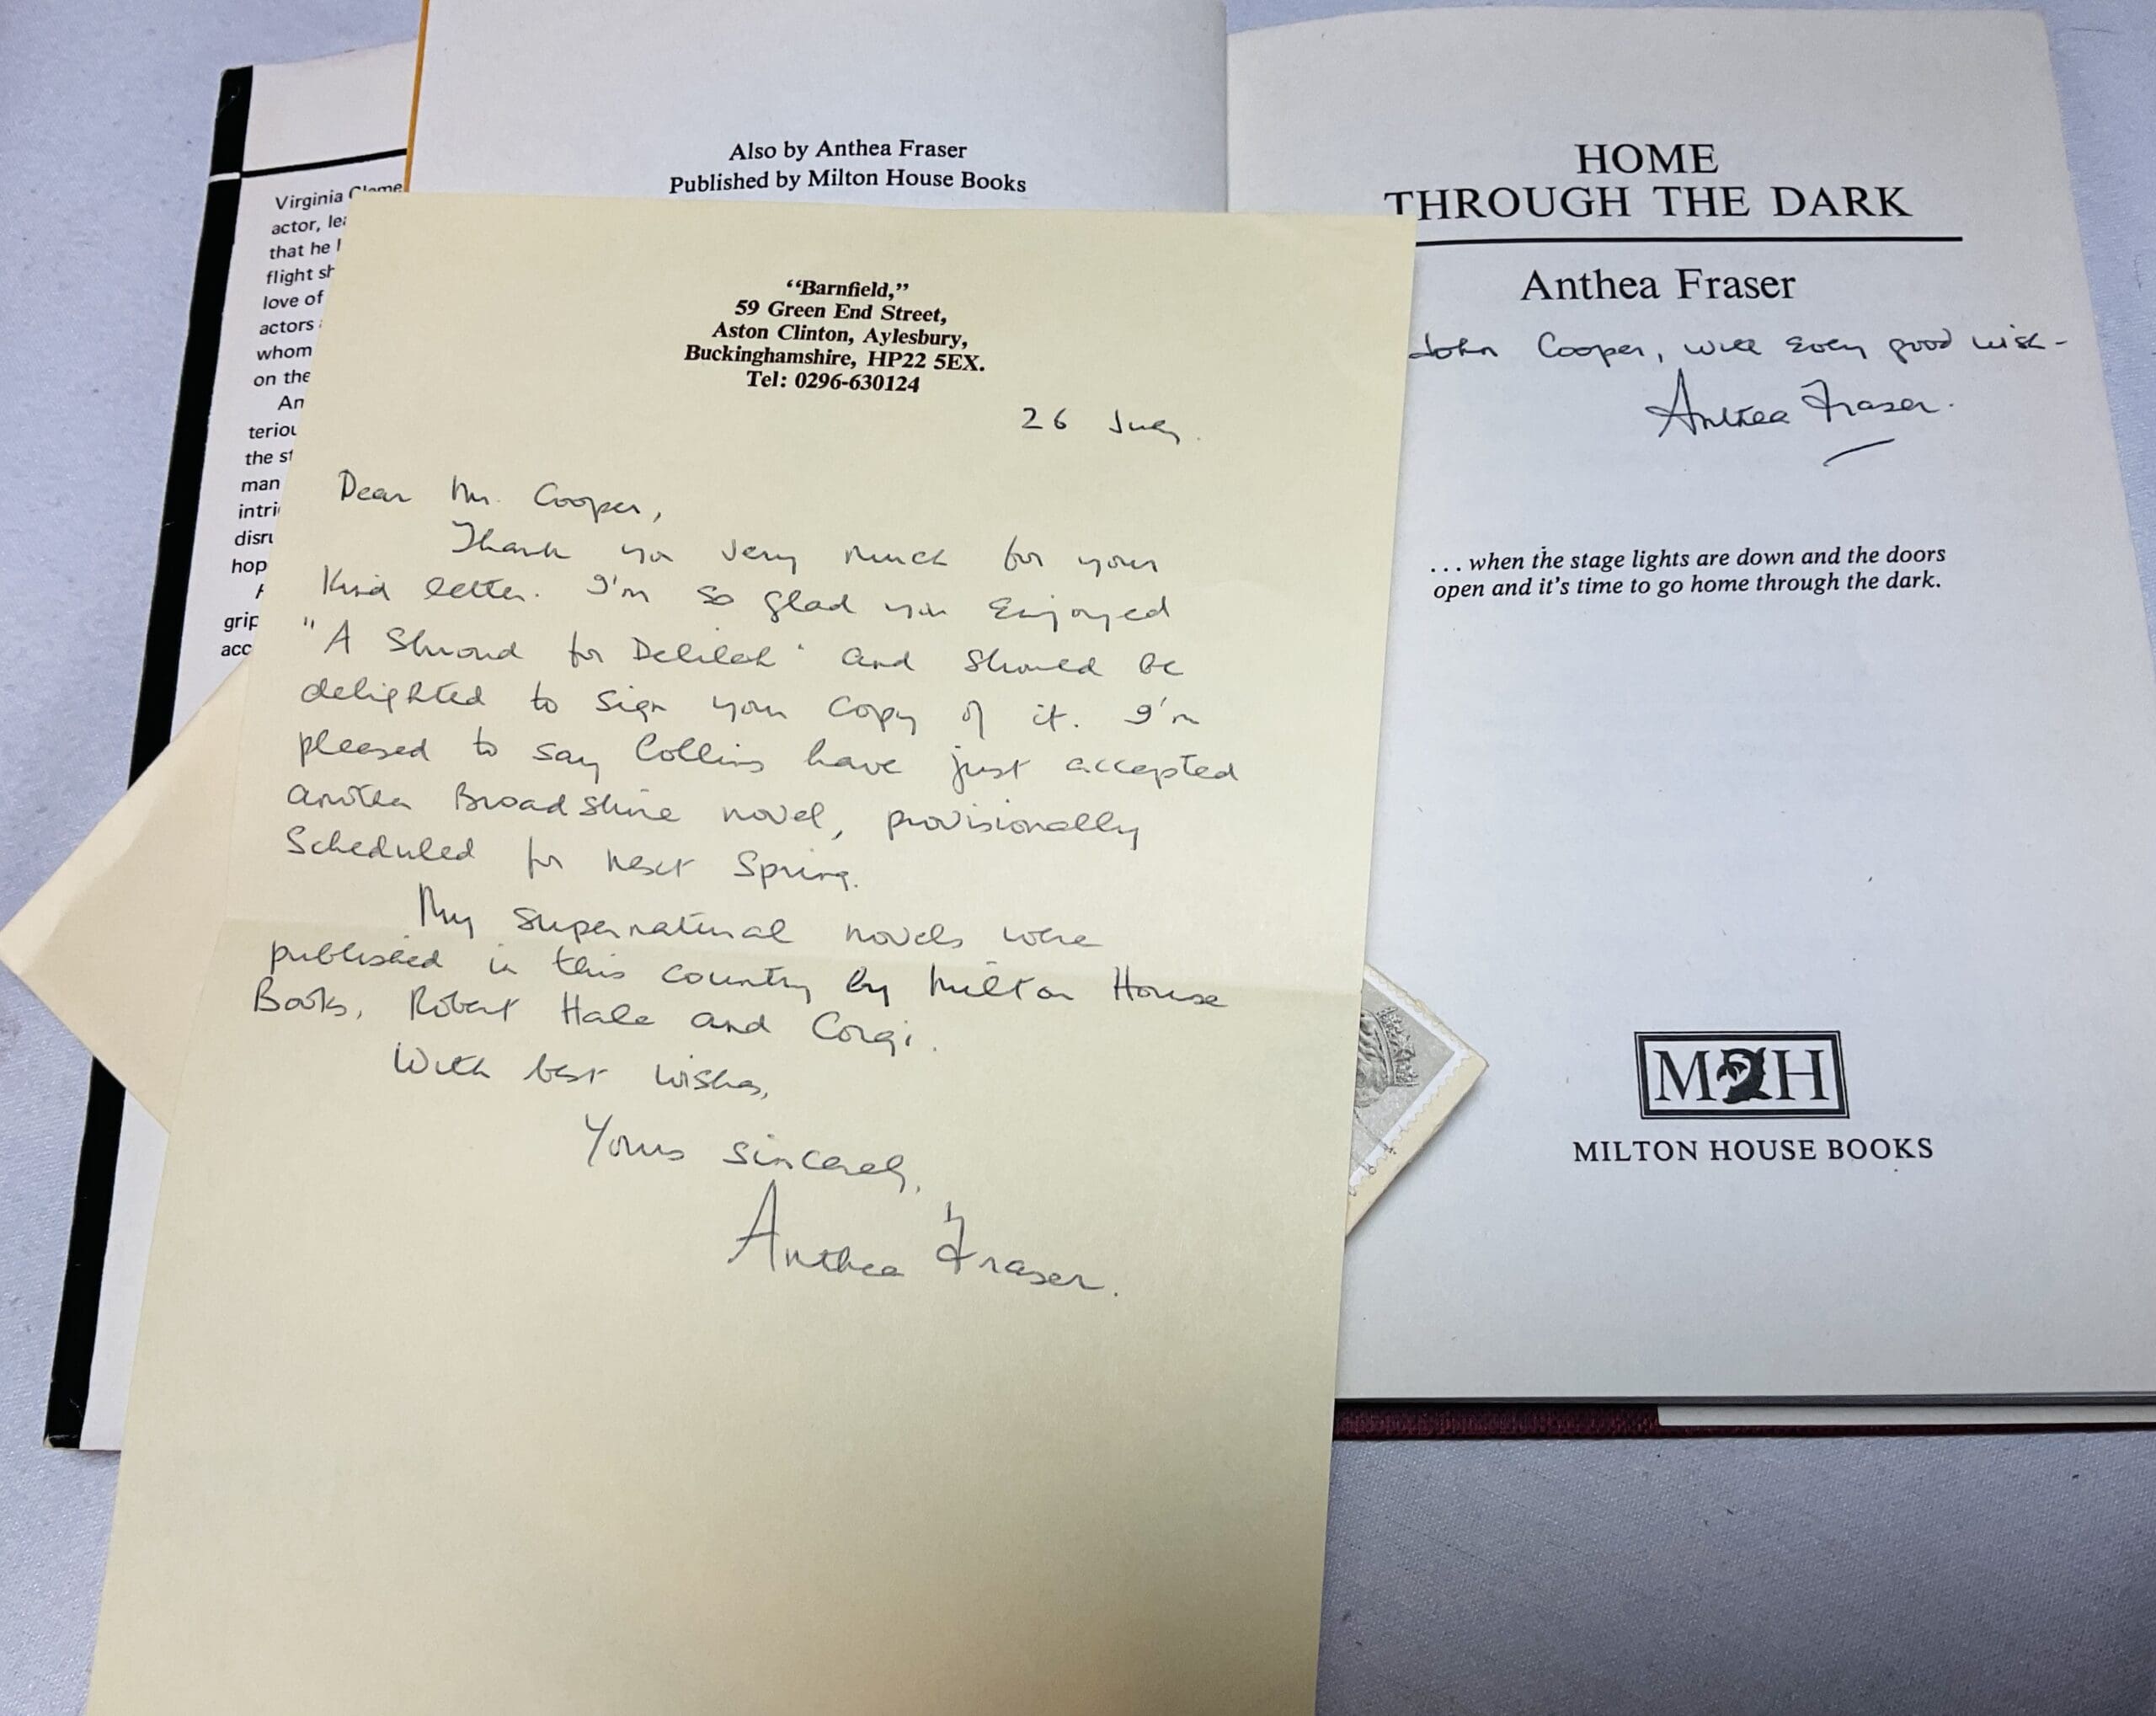 Virginia
actor,
that he
flight
love of
actors
whom
on the
the
man
Also by Anthea Fraser
Published by Milton House Books
"Barnfield,"
59 Green End Street,
Aston Clinton, Aylesbury,
Buckinghamshire, HP22 5EX.
Tel: 0296-630124
26 July.
Dear Mr. Cooper,
Thank you very much for your
kind letter. I'm so glad you enjoyed
"A Shroud for Delilah" and should be
delighted to sign your copy of it. I'm
pleased to say Collins have just accepted
another Broadshire novel, provisionally
scheduled for next Spring.
My supernatural novels were
published in this country by Milton House
Books, Robert Hale and Corgi.
With best wishes,
Yours sincerely,
Anthea Fraser.
HOME
THROUGH THE DARK
Anthea Fraser
John Cooper, with every good wish -
Anthea Fraser.
... when the stage lights are down and the doors
open and it's time to go home through the dark.
MH
MILTON HOUSE BOOKS